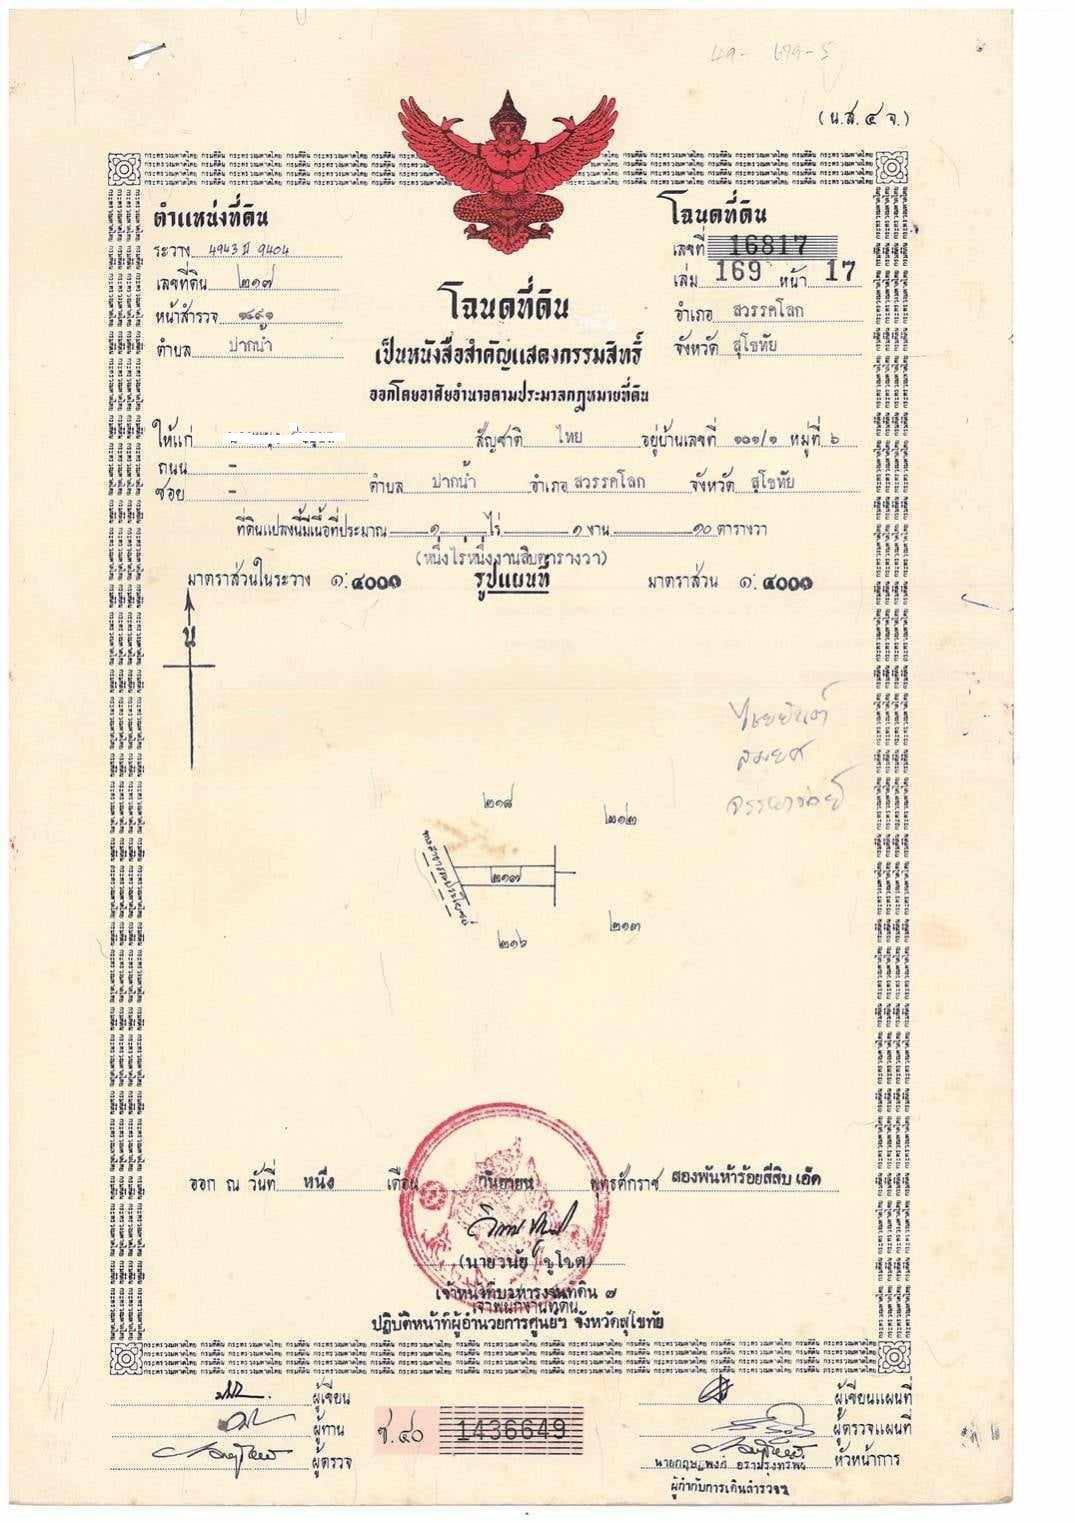 (น.ส.๔ จ.)
ตำแหน่งที่ดิน
ระวาง 4943 II 9404
เลขที่ดิน ๒๑๗
หน้าสำรวจ ๑๔๙๑
ตำบล ปากน้ำ
โฉนดที่ดิน
เลขที่ 16817
เล่ม 169 หน้า 17
อำเภอ สวรรคโลก
จังหวัด สุโขทัย
โฉนดที่ดิน
เป็นหนังสือสำคัญแสดงกรรมสิทธิ์
ออกโดยอาศัยอำนาจตามประมวลกฎหมายที่ดิน
ให้แก่ สัญชาติ ไทย อยู่บ้านเลขที่ ๑๐๑/๑ หมู่ที่ ๖
ถนน -
ซอย - ตำบล ปากน้ำ อำเภอ สวรรคโลก จังหวัด สุโขทัย
ที่ดินแปลงนี้มีเนื้อที่ประมาณ ๑ ไร่ ๑ งาน ๑๐ ตารางวา
(หนึ่งไร่หนึ่งงานสิบตารางวา)
มาตราส่วนในระวาง ๑:๔๐๐๐ รูปแผนที่ มาตราส่วน ๑:๔๐๐๐
น
๒๑๘
๒๑๒
ทางสาธารณประโยชน์
๒๑๗
๒๑๓
๒๑๖
ออก ณ วันที่ หนึ่ง เดือน กันยายน พุทธศักราช สองพันห้าร้อยสี่สิบเอ็ด
(นายวินัย ชูโชต)
เจ้าหน้าที่บริหารงานที่ดิน ๗
เจ้าพนักงานที่ดิน
ปฏิบัติหน้าที่ผู้อำนวยการศูนย์ฯ จังหวัดสุโขทัย
ผู้เขียน
ผู้ทาน
ผู้ตรวจ
ช.๔๐ 1436649
ผู้เขียนแผนที่
ผู้ตรวจแผนที่
หัวหน้าการ
ผู้กำกับการเดินสำรวจฯ